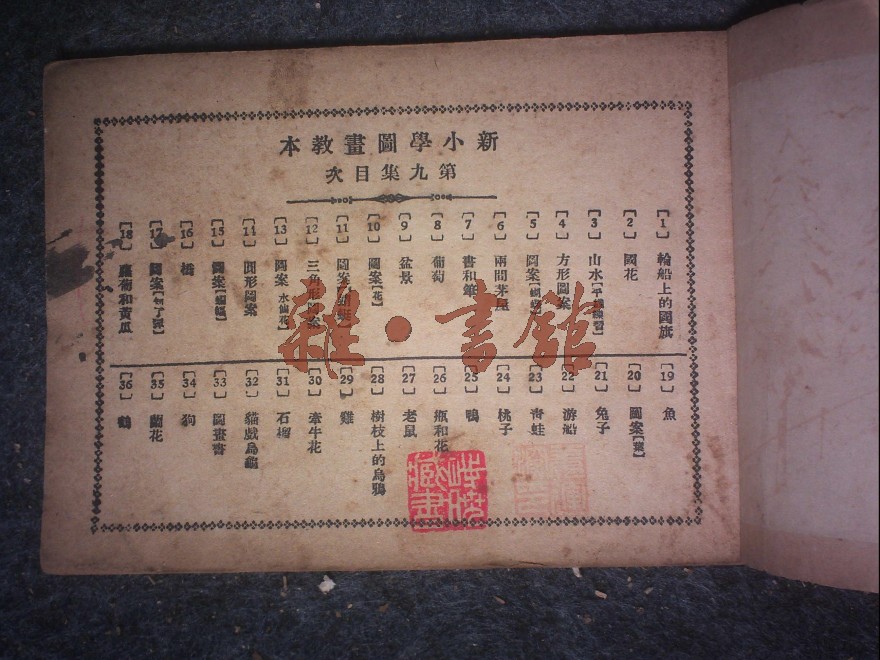 新小學圖畫教本
第九集目次
[1] 輪船上的國旗
[2] 國花
[3] 山水
[4] 方形圖案
[5] 圖案
[6] 兩間茅屋
[7] 書和筆
[8] 葡萄
[9] 盆景
[10] 圖案[花]
[11] 圖案
[12] 三角形圖案
[13] 圖案[水仙花]
[14] 圓形圖案
[15] 圖案[蝴蝶]
[16] 橋
[17] 圖案
[18] 蘿蔔和黃瓜
[19] 魚
[20] 圖案
[21] 兔子
[22] 游船
[23] 青蛙
[24] 桃子
[25] 鴨
[26] 瓶和花
[27] 老鼠
[28] 樹枝上的烏鴉
[29] 雞
[30] 牽牛花
[31] 石榴
[32] 貓戲烏龜
[33] 圖畫書
[34] 狗
[35] 蘭花
[36] 鶴
雜·書館